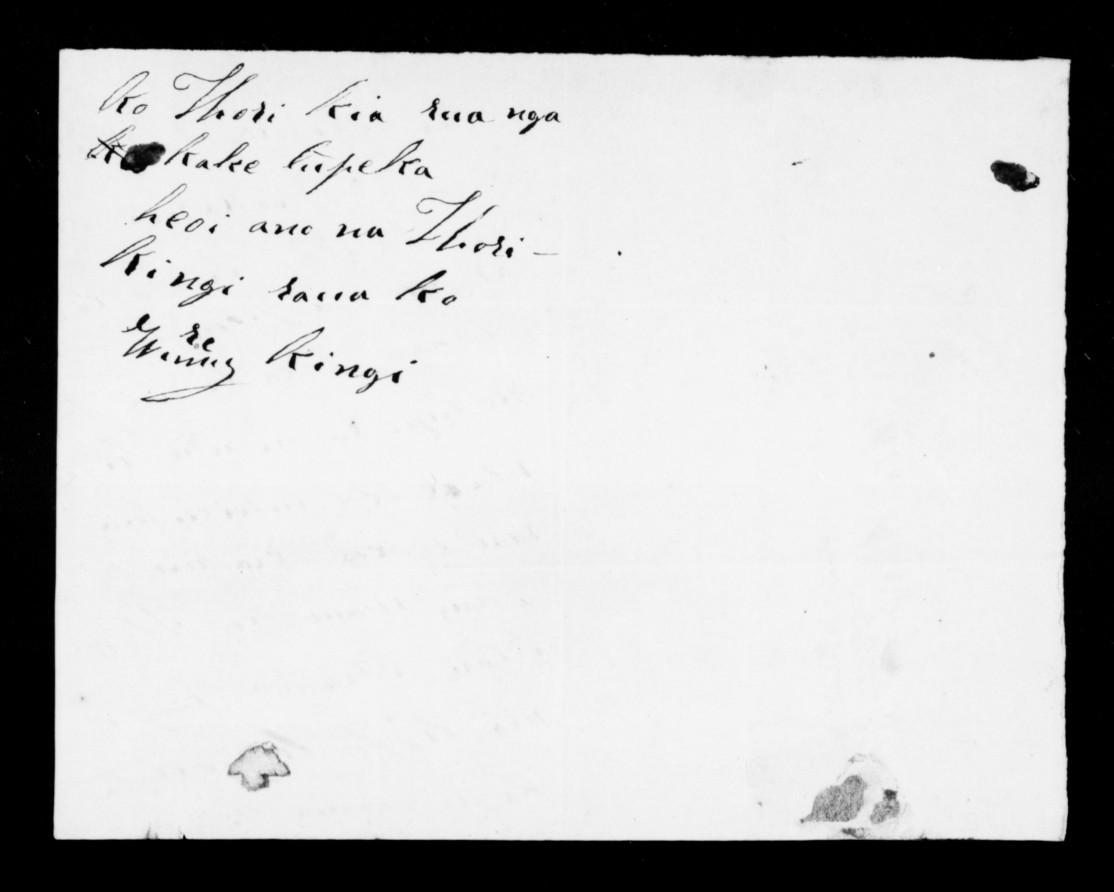 ko Ihori kia rua nga
kake tupeka
heoi ano na Ihori –
Kingi raua ko
Wiremu Kingi